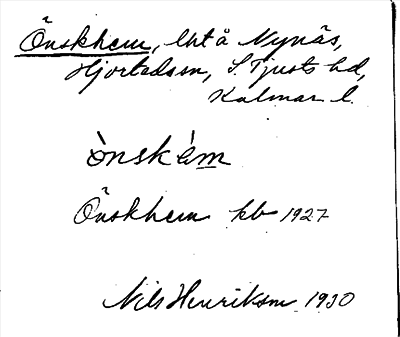 Önskhem, lht å Nynäs,
Hjorteds sn, S. Tjusts hd,
Kalmar l.
ò̀nském
Önskhem kb 1927
Nils Henrikson 1930